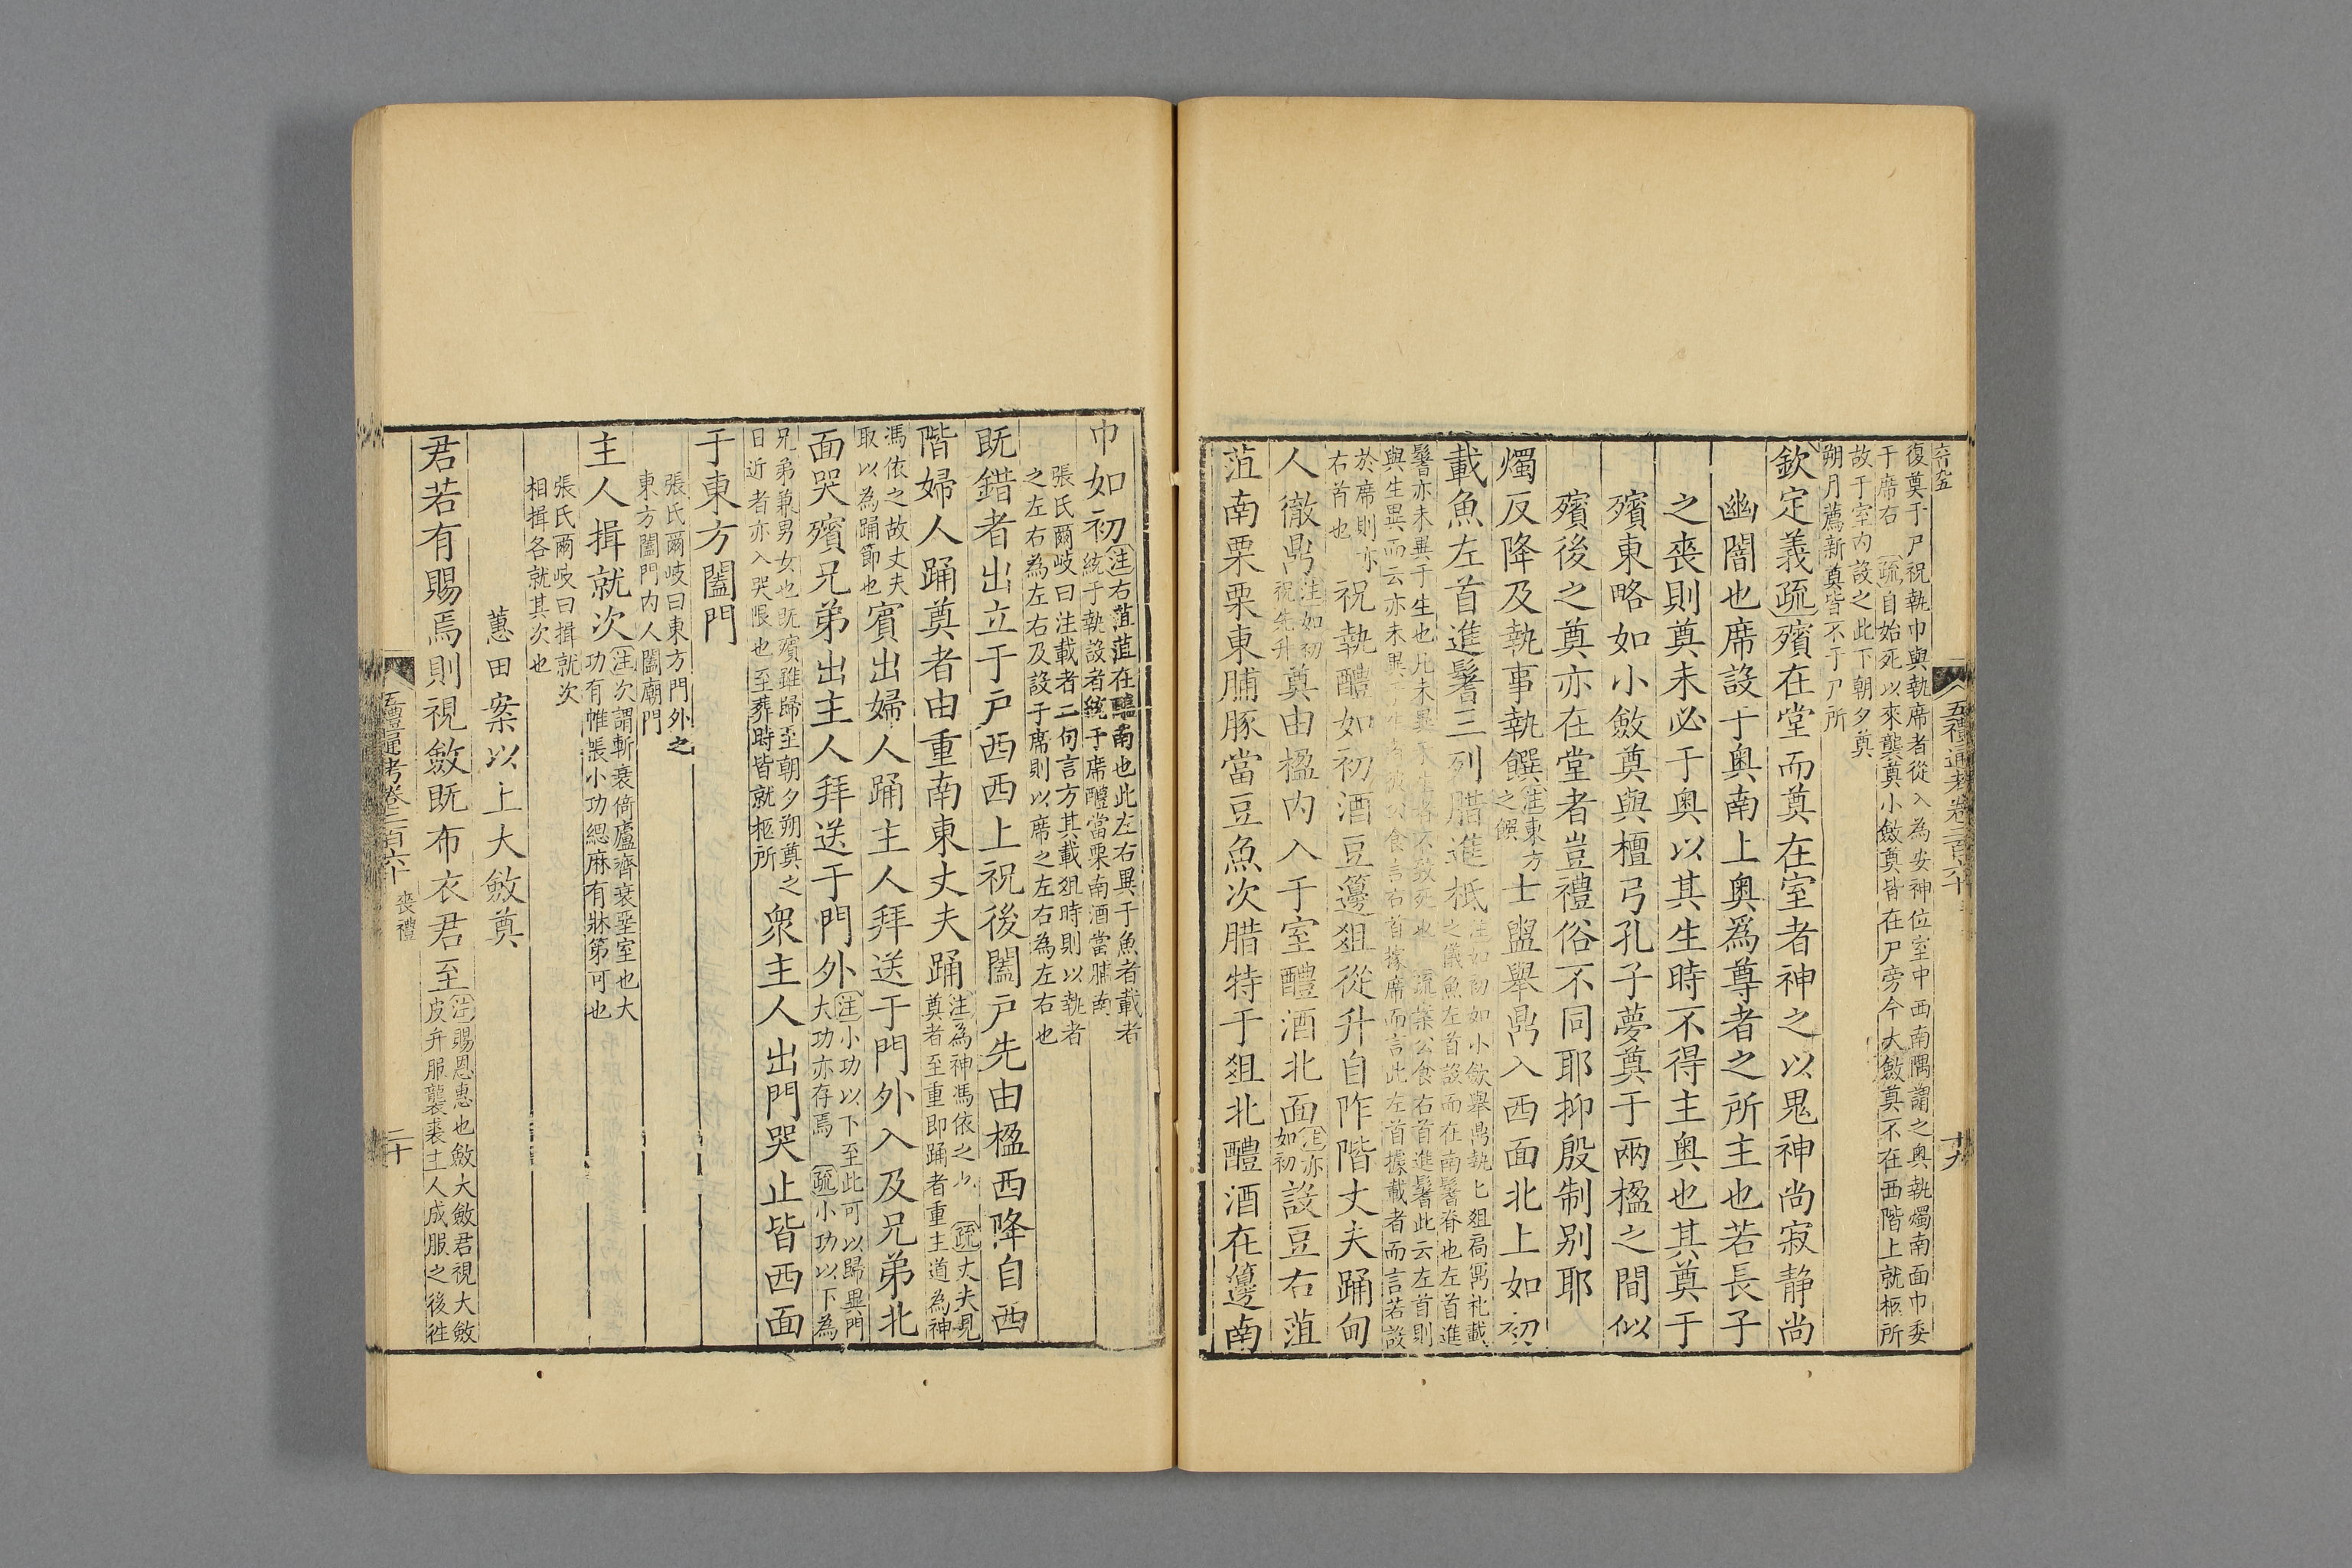 五禮通考卷二百六十
十九
復奠于尸祝執巾與執席者從入為安神位室中西南隅謂之奥執燭南面巾委
于席右 疏自始死以來襲奠小斂奠皆在尸旁今大斂奠不在西階上就柩所
故于室内設之此下朝夕奠
朔月薦新奠皆不于尸所
欽定義疏殯在堂而奠在室者神之以鬼神尚寂静尚
幽闇也席設于奥南上奥為尊者之所主也若長子
之喪則奠未必于奥以其生時不得主奥也其奠于
殯東略如小斂奠與檀弓孔子夢奠于兩楹之間似
殯後之奠亦在堂者豈禮俗不同耶抑殷制别耶
燭反降及執事執饌注東方
之饌士盥舉鼎入西面北上如初
載魚左首進鬐三列腊進柢注如初如小斂舉鼎執匕俎扃鼏朼載
之儀魚左首設而在南鬐脊也左首進
鬐亦未異于生也凡未異于生者不致死也 疏案公食右首進鬐此云左首則
與生異而云亦未異于生者彼公食言右首據席而言此左首據載者而言若設
於席則亦
右首也祝執醴如初酒豆籩俎從升自阼階丈夫踊甸
人徹鼎注如初
祝先升奠由楹内入于室醴酒北面注亦
如初設豆右菹
菹南栗栗東脯豚當豆魚次腊特于俎北醴酒在籩南
巾如初注右菹菹在醢南也此左右異于魚者載者
統于執設者統于席醴當栗南酒當脯南
張氏爾岐曰注載者二句言方其載俎時則以執者
之左右為左右及設于席則以席之左右為左右也
既錯者出立于戶西西上祝後闔戶先由楹西降自西
階婦人踊奠者由重南東丈夫踊注為神馮依之也 疏丈夫見
奠者至重即踊者重主道為神
馮依之故丈夫
取以為踊節也賓出婦人踊主人拜送于門外入及兄弟北
面哭殯兄弟出主人拜送于門外注小功以下至此可以歸異門
大功亦存焉 疏小功以下為
兄弟兼男女也既殯雖歸至朝夕朔奠之
日近者亦入哭限也至葬時皆就柩所眾主人出門哭止皆西面
于東方闔門
張氏爾岐曰東方門外之
東方闔門内人闔廟門
主人揖就次注次謂斬衰倚廬齊衰堊室也大
功有帷帳小功緦麻有牀笫可也
張氏爾岐曰揖就次
相揖各就其次也
蕙田案以上大斂奠
君若有賜焉則視斂既布衣君至注賜恩惠也斂大斂君視大斂
皮弁服襲裘主人成服之後往
五禮通考卷二百六十
喪禮
二十